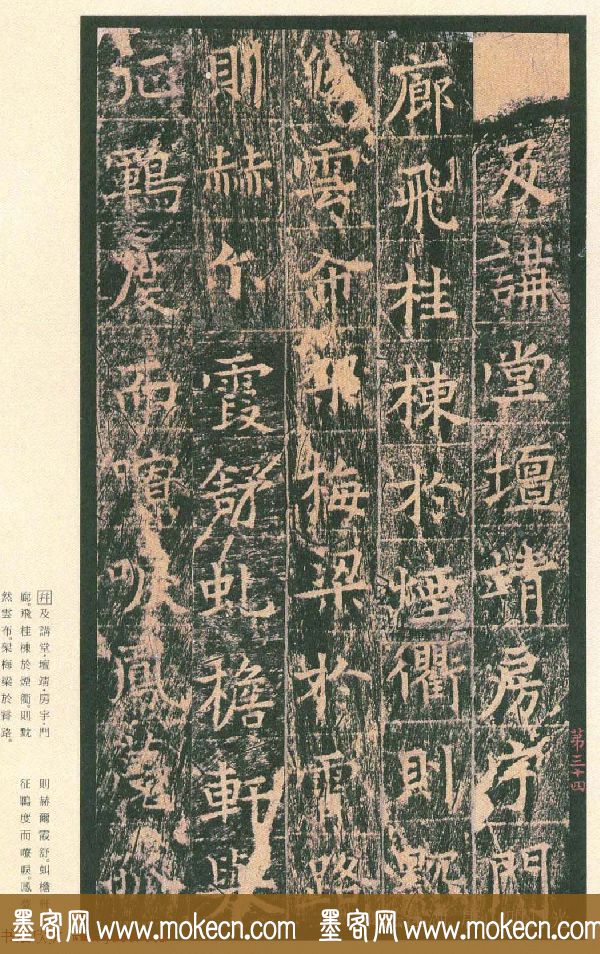 及講堂壇靖房宇門
廊飛桂棟於煙衢則黕
然雲布架梅梁於霄路
則赫尒霞舒虬檐軒舉
征鶤度而嘹唳鳳
第三十四
及講堂、壇靖、房宇、門
廊。飛桂棟於煙衢。則黕
然雲布。架梅梁於霄路。
則赫爾霞舒。虬檐
征鶤度而嘹唳。鳳
墨客网 www.mokecn.com 墨客网 www.mokecn.com